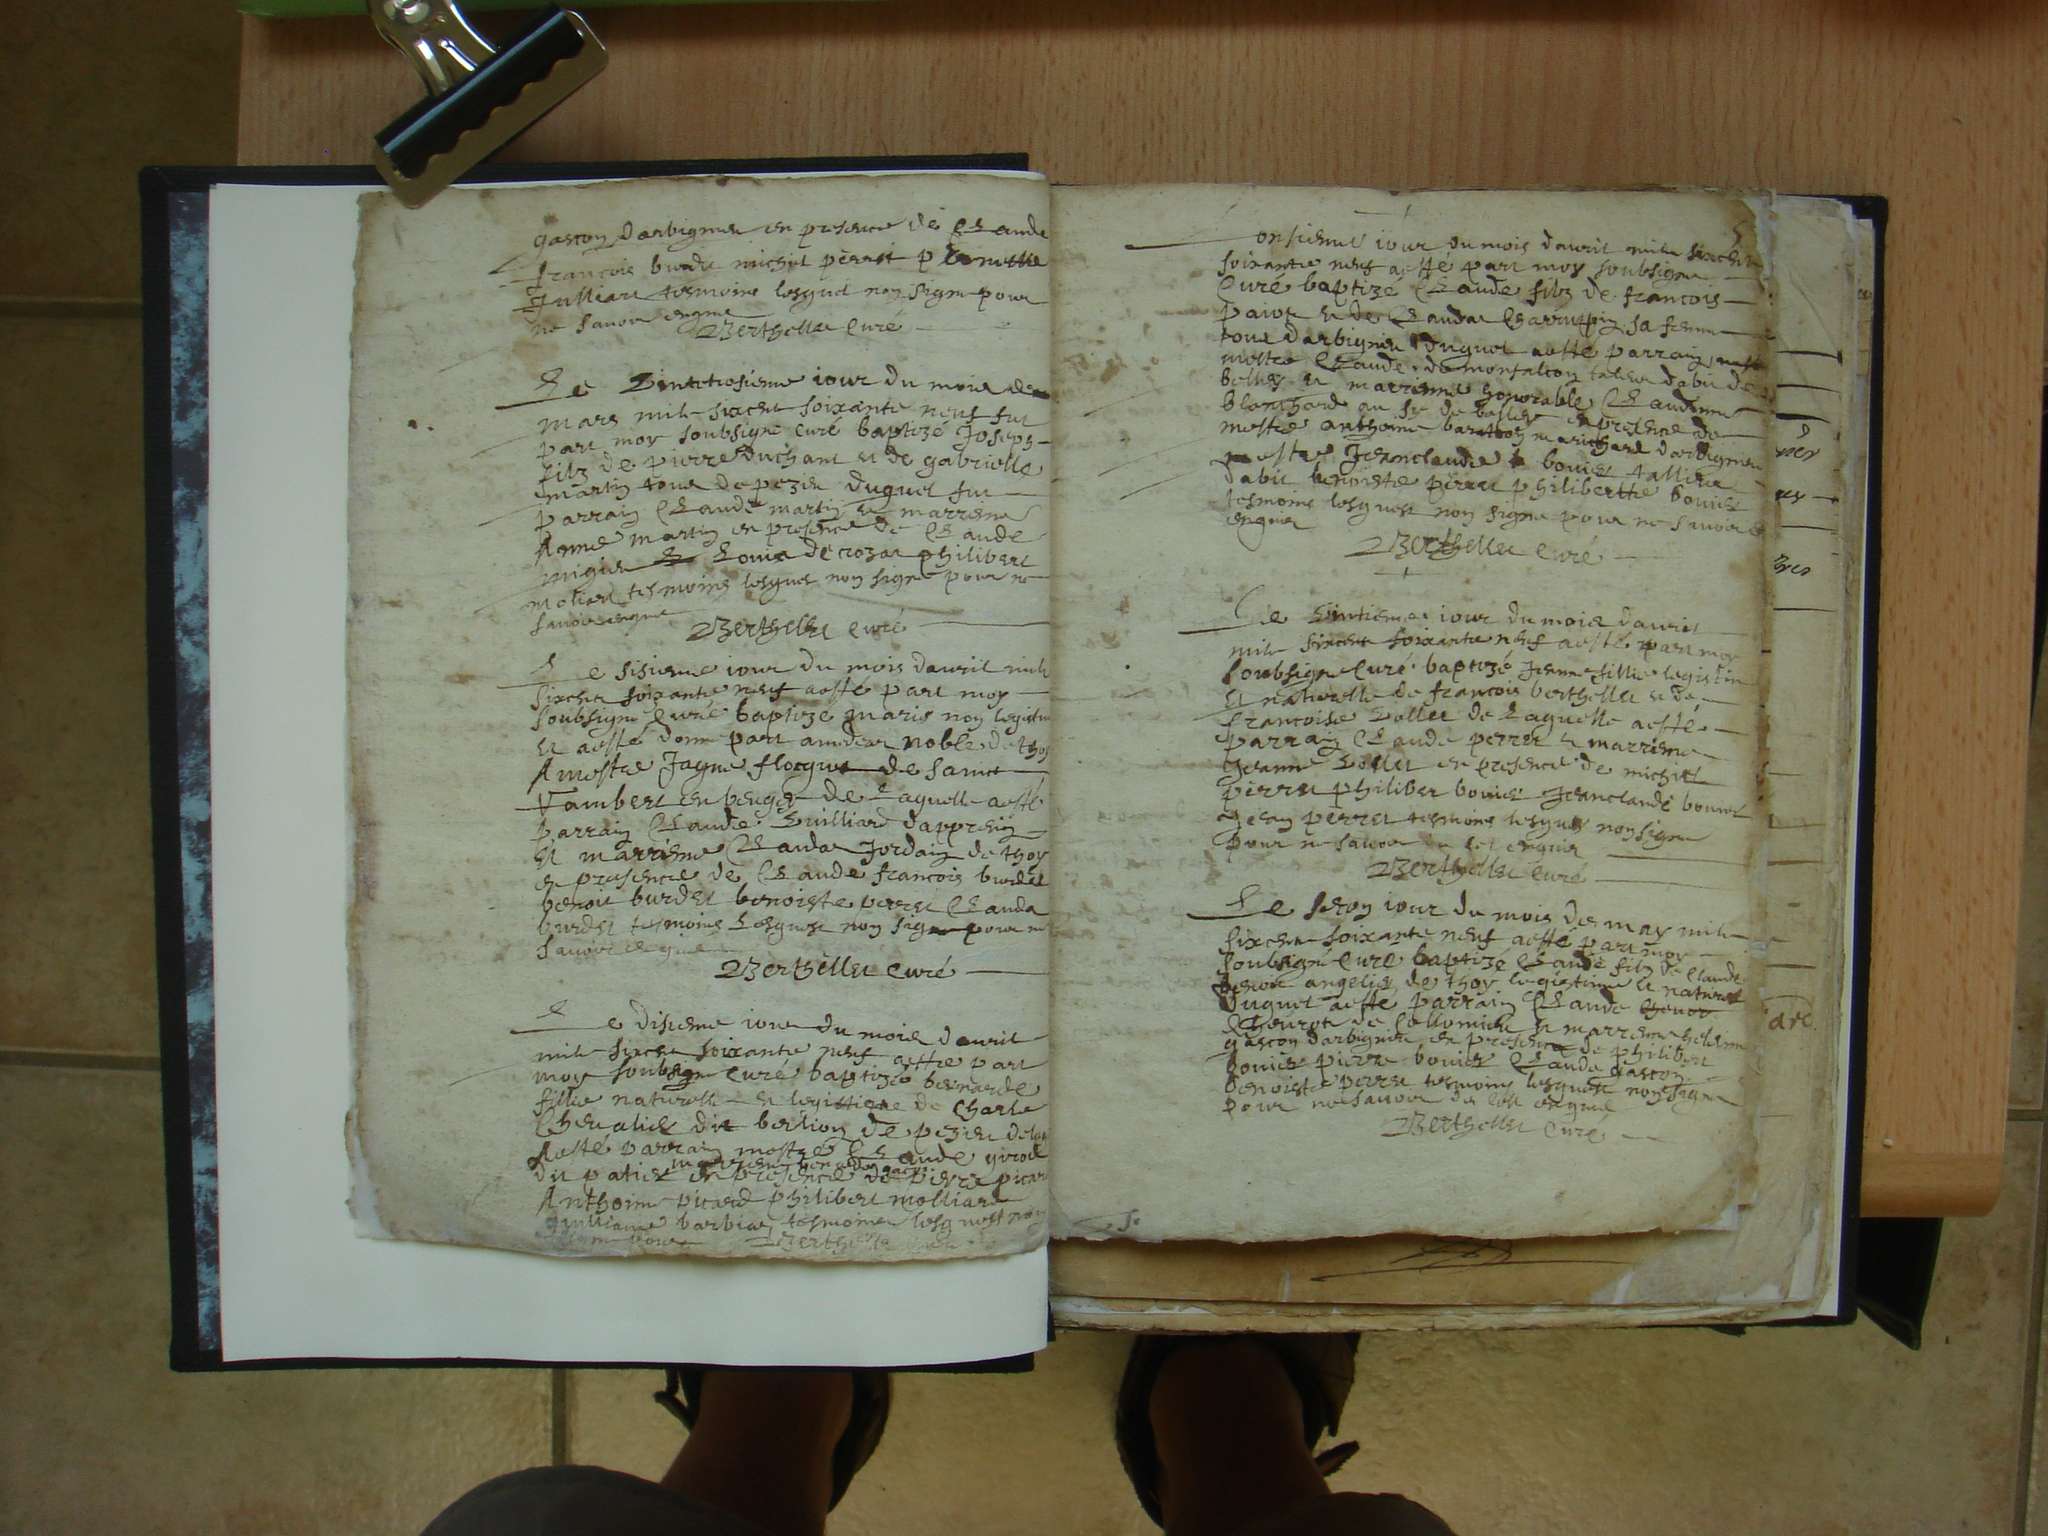 gascon darbignieu en presence de Claude
francois burdit michel perret p
Julliart tesmoins lesquel non signe pour
ne savoir engme
Berthellet Curé
Le vintetrosieme iour du mois de
mars mile sixcent soixante neuf fut
part moy soubsigne Curé baptizé Joseph
filz de pierre duchant et de gabrielle
martin tous de pezieu duquel fut
parrain Claude martin et marrenne
Anne martin en presence de Claude
migieu Louis de crozat philibert
molian tesmoins lesquel non signe pour ne
savoir engme
Berthellet Curé
Le sisieme iour du mois davril mile
sixcent soixante neuf aesté part moy
soubsigne Curé baptizé maris non legistime
et aesté donne part amedeaz noble de thoy
A mestre Jayme flocquet de saint
Vambert en beugey de Laquelle aesté
parrain Claude Vuilliard dappregnin
et marrienne Clauda Jordain de thoy
en presence de Claude francois burdet
benoit burdet benoiste perret Clauda
burdet tesmoins Lesquest non signe pour ne
savoir engme
Berthellet Curé
Le disieme iour du mois davril
mile sixcent soixante neuf aesté part
moy soubsigne Curé baptizé bernarde
fillie naturelle et legistime de Charle
Chevalier dit berlion de pezieu de
Aesté parrain mostre Claude girod
dit patier en presence de pierre picard
Anthoine picard philibert molliard
Julliaine barbier tesmoins lesquest non
pour Berthelle
5
onsieme iour du mois davril mile sixcent
soixante neuf aesté part moy soubsigne
Curé baptizé Claude filz de francois
paiot et de Clauda Charruppin sa femme
tous darbignieu duquel aesté parrain
mestre Claude de monfalcon talieur dabit de
belley et marrienne honorable Claudinne
blanchard au Sr de basley en presence de
mestre anthoine marichard darbignieu
mestre Jeanclaude bouvier tallieur
dabit benoiste perret philibertte bouvier
tesmoins lesquest non signe pour ne savoir
engme
Berthellet Curé
Le vintieme iour du mois davril
mile sixcent soixante neuf aesté part moy
soubsigne Curé baptizé Jenne fillie legistime
et naturelle de francois berthellet et de
francoise Sollet de Laquelle aesté
parrain Claude perret et marrienne
Jeanne Sollet en presence de michiel
perret philiber bouvier Jeanclaude bouvier
Jean perret tesmoins lesquest non signe
pour ne savoir engme
Berthellet Curé
Le segon iour du mois de may mile
sixcent soixante neuf aesté part moy
soubsigné Curé baptizé Claude filz de Claude
angelin de thoy legistime et naturel
duquel aesté parrain Claude
Chevrot de Collomieu et marrenne
gascon darbignieu en presence de philibert
bouvier pierre bouvier Clauda gascon
benoiste perret tesmoins lesquest non signe
pour ne savoir de engme
Berthellet Curé
5.